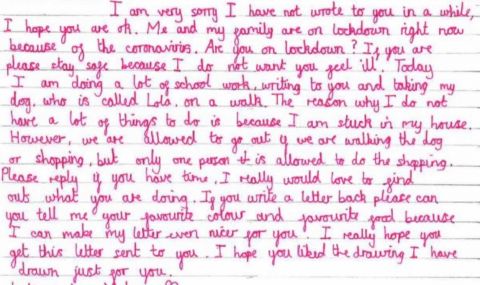 I am very sorry I have not wrote to you in a while,
I hope you are ok. Me and my family are on lockdown right now
because of the coronavirus. Are you on lockdown? If you are
please stay safe because I do not want you feel ill. Today
I am doing a lot of school work, writing to you and taking my
dog, who is called Lola, on a walk. The reason why I do not
have a lot of things to do is because I am stuck in my house.
However, we are allowed to go out if we are walking the dog
or shopping, but only one person is allowed to do the shopping.
Please reply if you have time, I really would love to find
out what you are doing. If you write a letter back please can
you tell me your favourite colour and favourite food because
I can make my letter even nicer for you. I really hope you
get this letter sent to you. I hope you liked the drawing I have
drawn just for you.